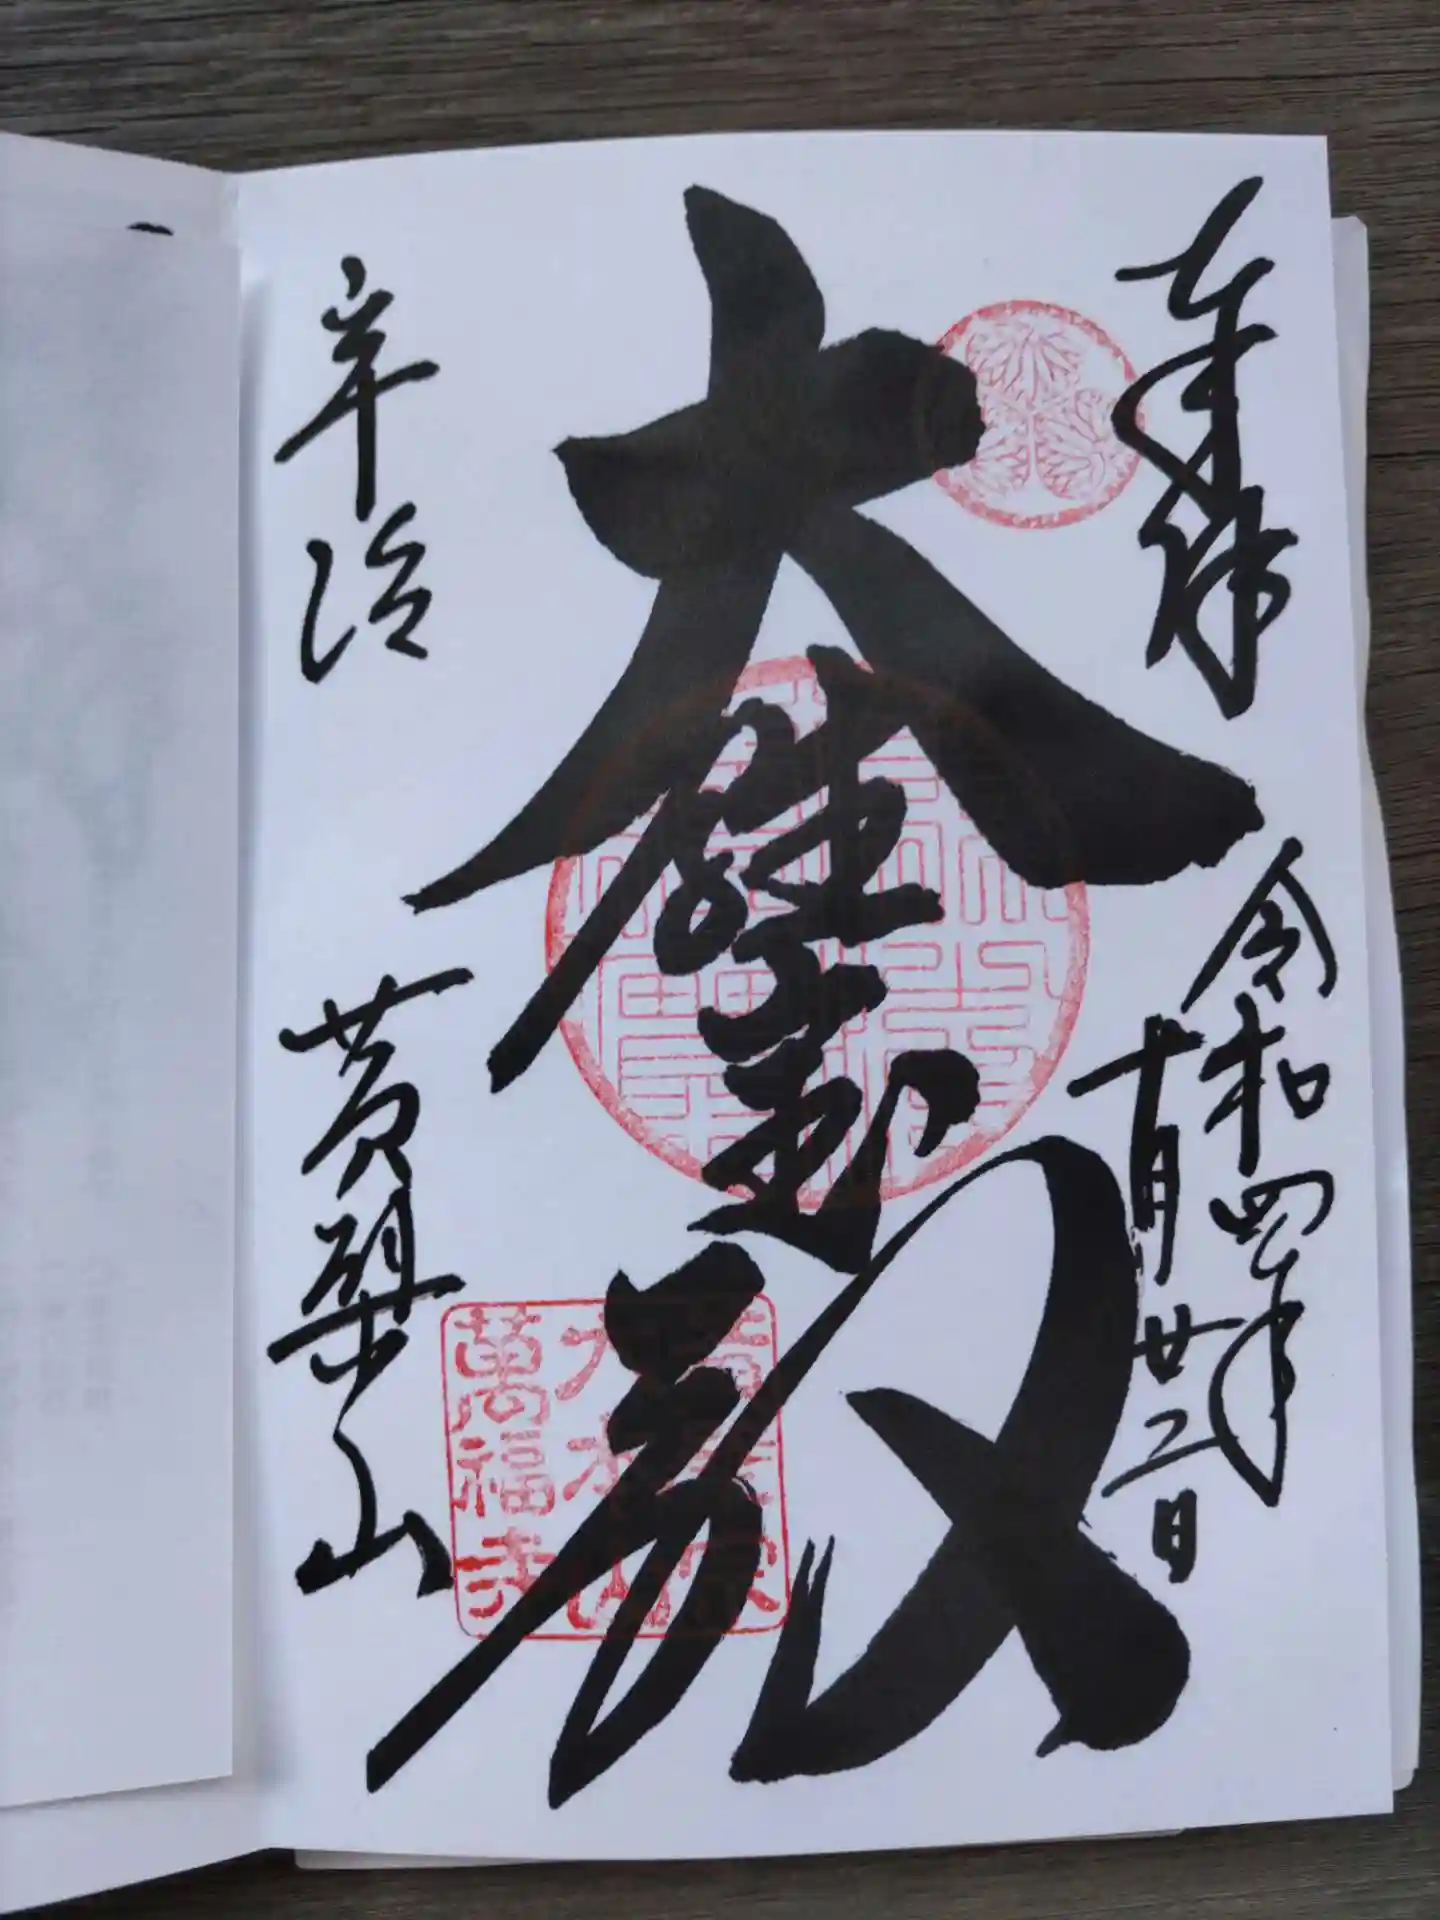 奉拝
令和四年
十月廿二日
大雄寶殿
宇治
黄檗山
黄檗宗
大本山
萬福寺